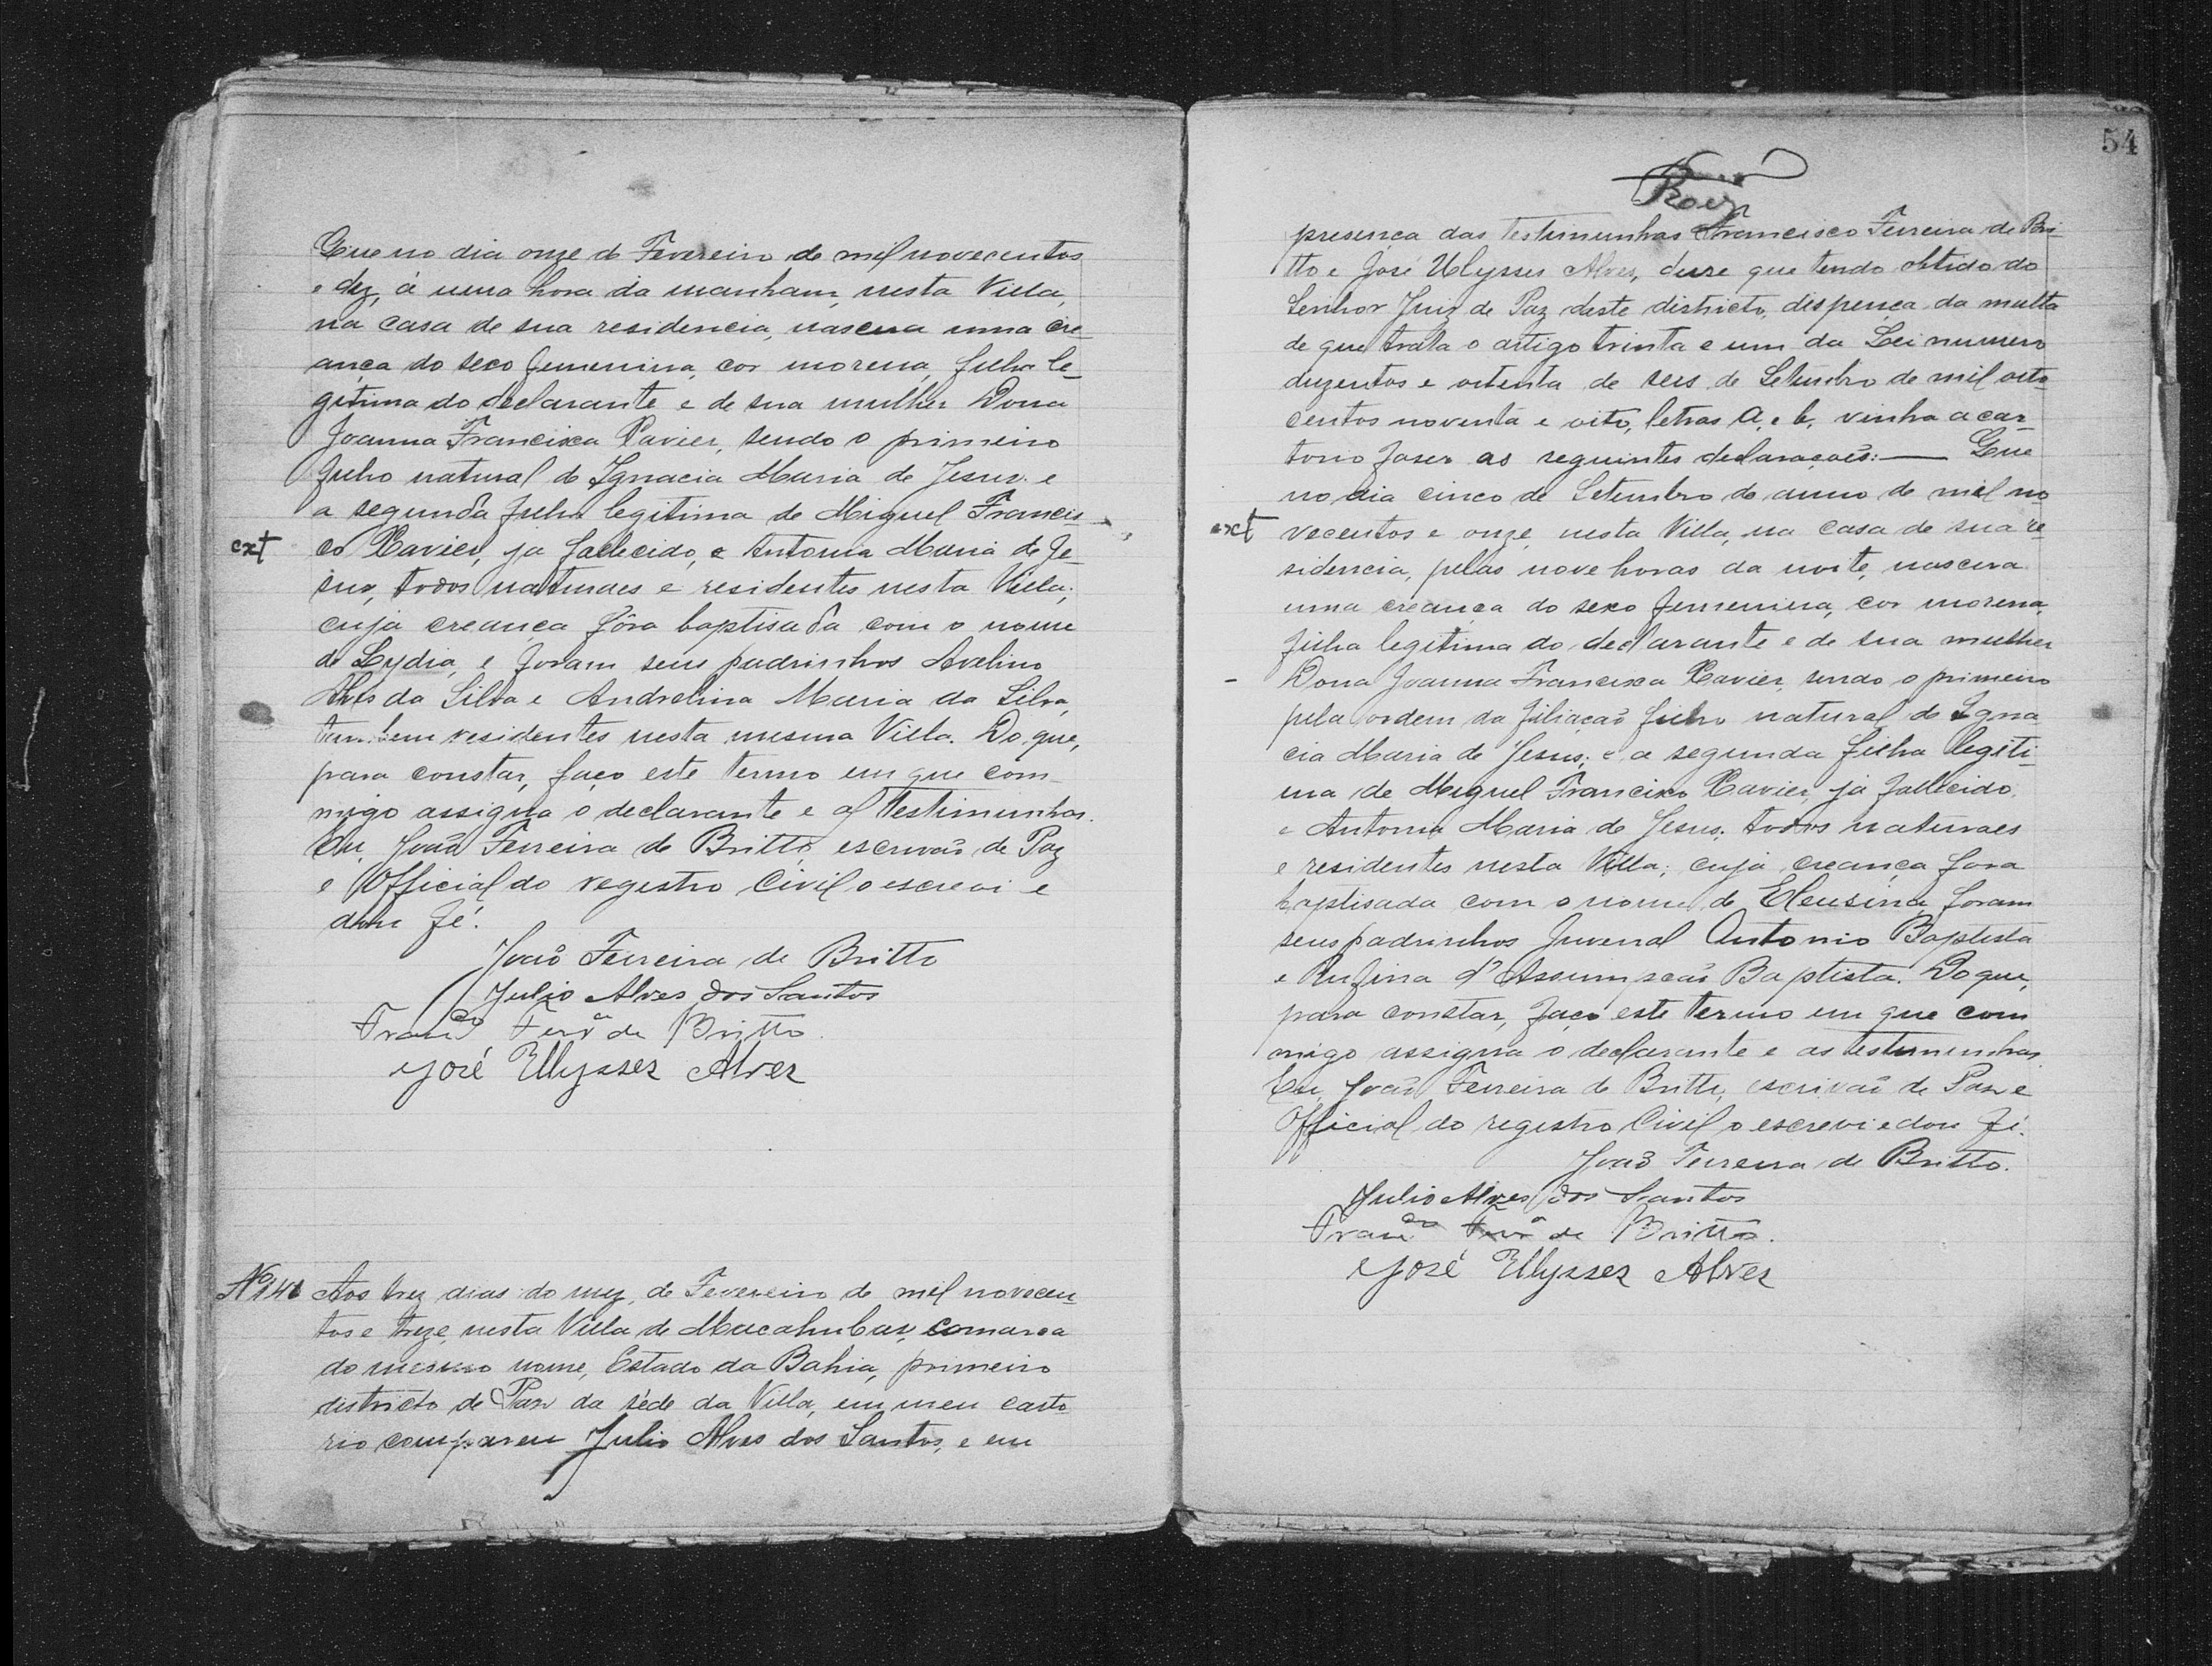 Que no dia onze de Fevereiro de mil novecentos
e dez, á uma hora da manham, nesta Villa,
na casa de sua residencia, nascera uma cre-
ança do sexo femenino, cor morena, filha le-
gitima do declarante e de sua mulher Dona
Joanna Francisca Xavier, sendo o primeiro
filho natural de Ignacia Maria de Jesus e
a segunda filha legitima de Miguel Francis-
ext co Xavier, já fallecido, e Antonia Maria de Je-
sus, todos naturaes e residentes nesta Villa;
cuja creança fôra baptisada com o nome
de Lydia, e foram seus padrinhos Avelino
Alves da Silva e Andrelina Maria da Silva,
tambem residentes nesta mesma Villa. Do que,
para constar, faço este termo em que com-
migo assigna o declarante e as testimunhas.
Eu, João Ferreira de Britto, escrivão de Paz
e Official do registro Civil o escrevi e
dou fé.
João Ferreira de Britto
Julio Alves dos Santos
Franco Ferra de Britto.
José Ullysses Alves
Nº 141 Aos trez dias do mez de Fevereiro de mil novecen-
tos e treze, nesta Villa de Macahubas, comarca
do mesmo nome, Estado da Bahia, primeiro
districto de Paz da séde da Villa, em meu carto-
rio compareu Julio Alves dos Santos, e em
54
presença das testimunhas Francisco Ferreira de Bri-
tto e José Ulysses Alves, disse que tendo obtido do
Senhor Juiz de Paz deste districto, dispença da multa
de que trata o artigo trinta e um da Lei numero
duzentos e oitenta de seis de Setembro de mil oito
centos noventa e oito, letras a, e b, vinha a car-
torio faser as seguintes declarações: — Que
no dia cinco de Setembro do anno de mil no-
ext vecentos e onze, nesta Villa, na casa de sua re-
sidencia, pelas nove horas da noite, nascera
uma creança do sexo femenino, cor morena,
filha legitima do declarante e de sua mulher
Dona Joanna Francisca Xavier, sendo o primeiro
pela ordem da filiação filho natural de Igna-
cia Maria de Jesus; e a segunda filha legiti-
ma de Miguel Francisco Xavier, já fallecido,
e Antonia Maria de Jesus, todos naturaes
e residentes nesta Villa; cuja creança fora
baptisada com o nome de Eleusina foram
seus padrinhos Juvenal Antonio Baptista
e Rufina d'Assumpção Baptista. Do que,
para constar, faço este termo em que com
migo assigna o declarante e as testimunhas.
Eu, João Ferreira de Britto, escrivão de Paz e
Official do registro Civil o escrevi e dou fé.
João Ferreira de Britto.
Julio Alves dos Santos
Franco Ferra de Britto.
José Ullysses Alves